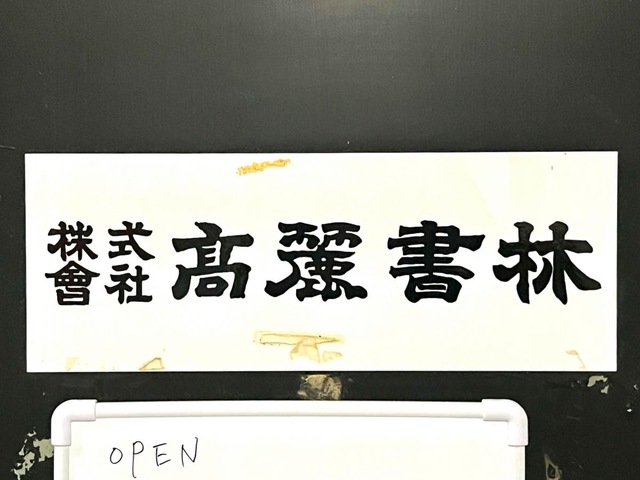 株式會社 高麗書林
OPEN